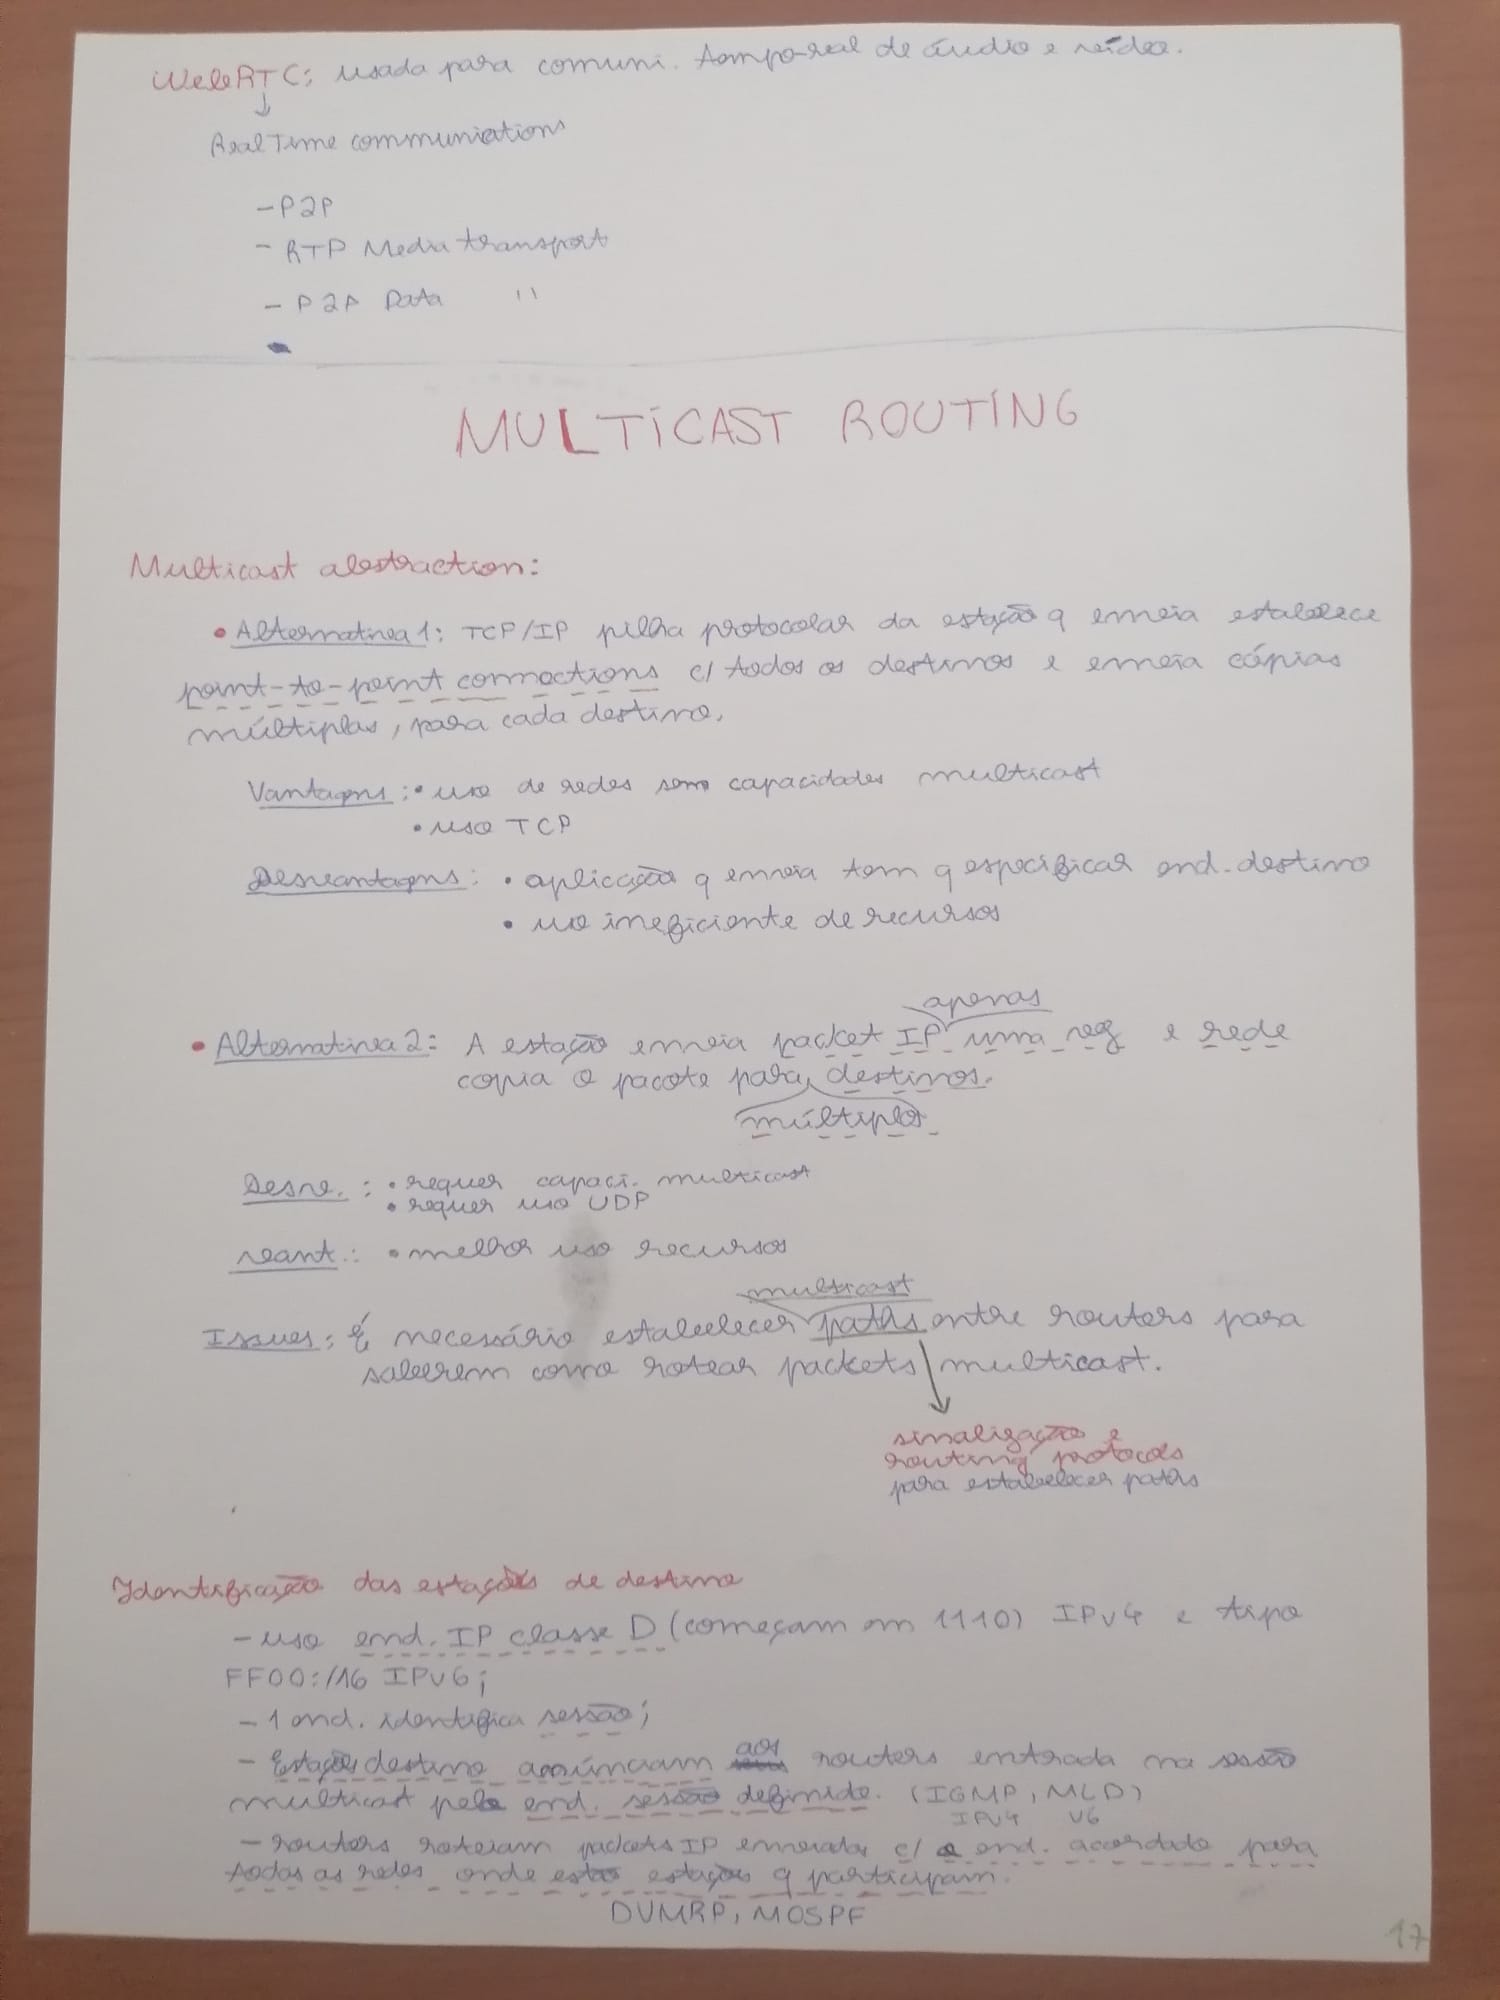 WebRTC: usada para comuni. tempo-real de áudio e vídeo.
↓
Real Time communications
- P2P
- RTP Media transport
- P2P Data "
MULTICAST ROUTING
Multicast abstraction:
• Alternativa 1: TCP/IP pilha protocolar da estação q envia estabelece
point-to-point connections c/ todos os destinos e envia cópias
múltiplas, para cada destino.
Vantagens: • uso de redes sem capacidades multicast
• uso TCP
Desvantagens: • aplicação q envia tem q especificar end. destino
• uso ineficiente de recursos
apenas
• Alternativa 2: A estação envia packet IP uma vez e rede
copia o pacote para destinos.
múltiplos
Desv.: • requer capaci. multicast
• requer uso UDP
vant.: • melhor uso recursos
multicast
Issues: É necessário estabelecer paths entre routers para
saberem como rotear packets multicast.
sinalização e
routing protocols
para estabelecer paths
Identificação das estações de destino
- uso end. IP classe D (começam em 1110) IPv4 e tipo
FF00:/16 IPv6;
- 1 end. identifica sessão;
- Estações destino anúnciam aos routers entrada na sessão
multicast pelo end. sessão definido. (IGMP, MLD)
IPv4 v6
- routers roteiam packets IP enviados c/ o end. acordado para
todas as redes onde estão estações q participam.
DVMRP, MOSPF
17